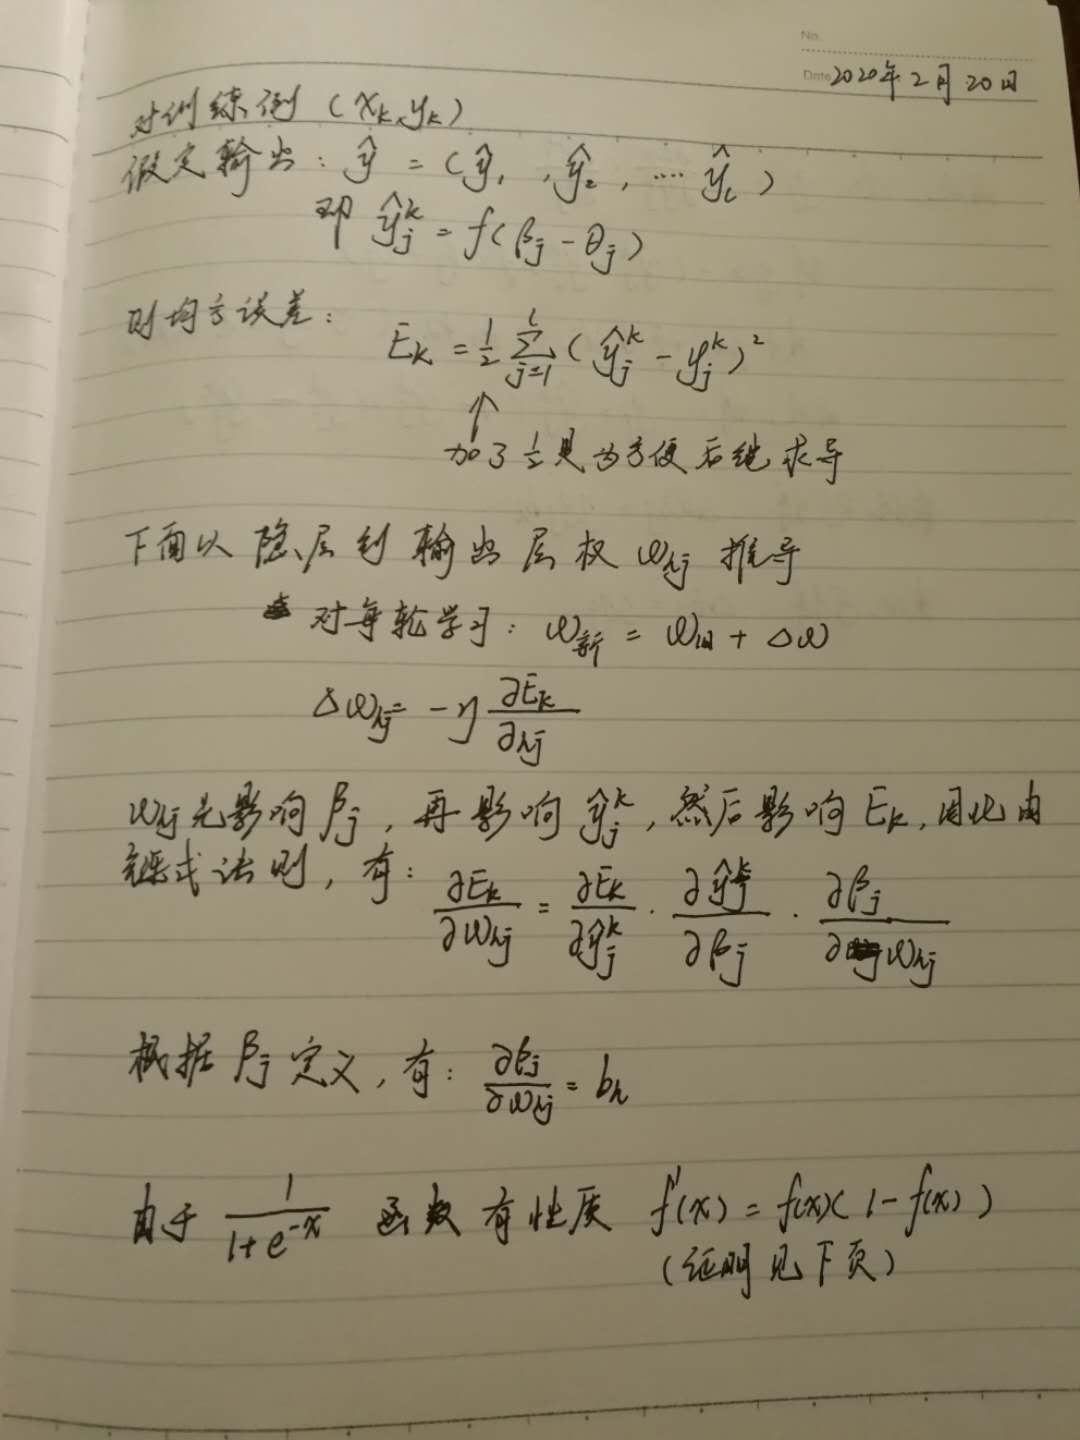 No.
Date 2020年2月20日
对训练例 (xₖ,yₖ)
假定输出: ŷ = (ŷ₁, ŷ₂, … ŷₗ)
即 ŷⱼᵏ = f(βⱼ - θⱼ)
则均方误差:
Eₖ = ½ ∑ⱼ₌₁ˡ (ŷⱼᵏ - yⱼᵏ)²
↑
加了½是为方便后继求导
下面以隐层到输出层权 ωₕⱼ 推导
对每轮学习: ω新 = ω旧 + Δω
Δωₕⱼ = -η ∂Eₖ/∂ₕⱼ
ωₕⱼ先影响βⱼ, 再影响ŷⱼᵏ, 然后影响Eₖ, 因此由
链式法则, 有: ∂Eₖ/∂ωₕⱼ = ∂Eₖ/∂ŷⱼᵏ · ∂ŷⱼᵏ/∂βⱼ · ∂βⱼ/∂ωₕⱼ
根据βⱼ定义, 有: ∂βⱼ/∂ωₕⱼ = bₕ
由于 1/(1+e⁻ˣ) 函数有性质 f'(x) = f(x)(1-f(x))
(证明见下页)